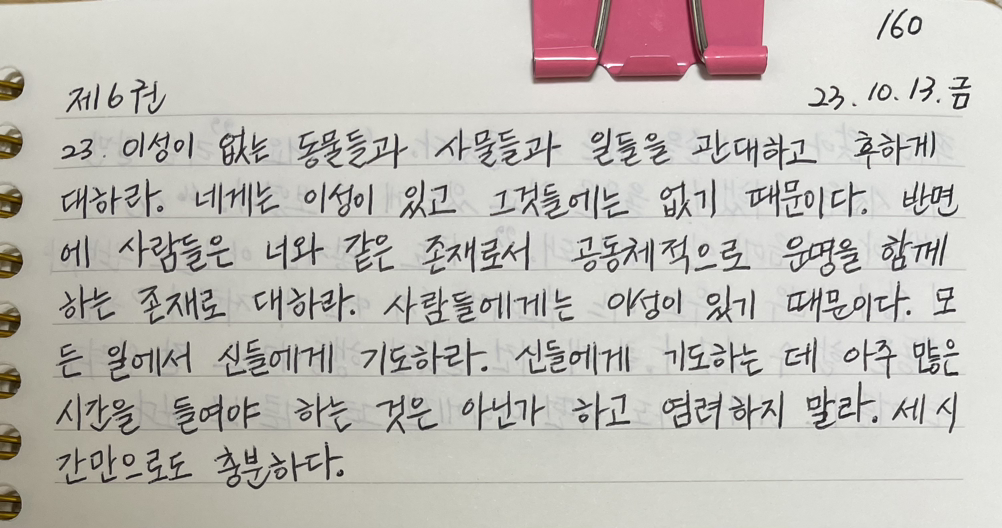 160
제6권 23. 10. 13. 금
23. 이성이 없는 동물들과 사물들과 일들을 관대하고 후하게
대하라. 네게는 이성이 있고 그것들에는 없기 때문이다. 반면
에 사람들은 너와 같은 존재로서 공동체적으로 운명을 함께
하는 존재로 대하라. 사람들에게는 이성이 있기 때문이다. 모
든 일에서 신들에게 기도하라. 신들에게 기도하는 데 아주 많은
시간을 들여야 하는 것은 아닌가 하고 염려하지 말라. 세 시
간만으로도 충분하다.